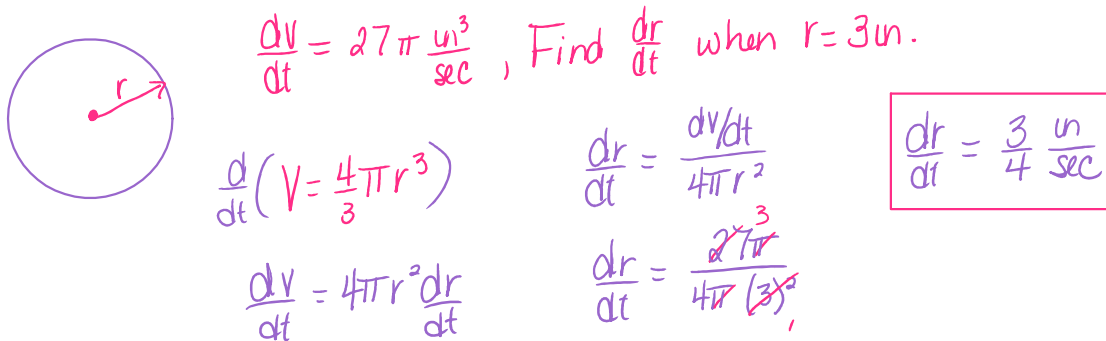 dv/dt = 27π in³/sec , Find dr/dt when r = 3 in.
r
d/dt (V = 4/3 πr³)
dv/dt = 4πr² dr/dt
dr/dt = dv/dt / 4πr²
dr/dt = 27π / 4π (3)²
3
1
dr/dt = 3/4 in/sec